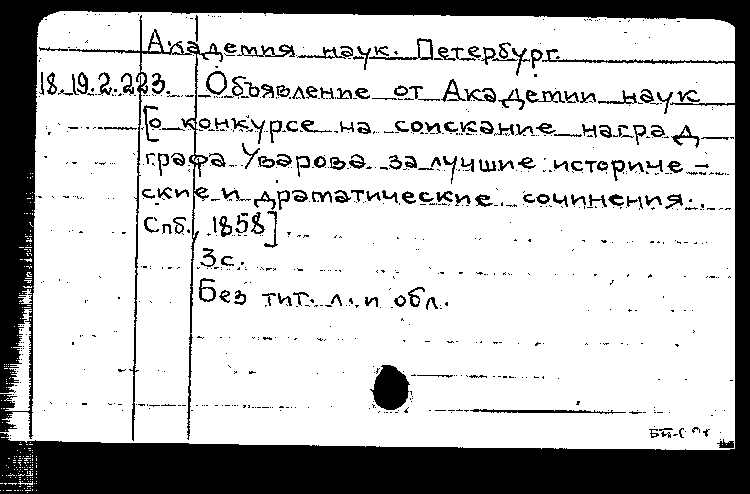 Академия наук. Петербург.
18.19.2.223. Объявление от Академии наук
[о конкурсе на соискание наград
графа Уварова за лучшие историче-
ские и драматические сочинения.
Спб., 1858].
3с.
Без тит. л. и обл.